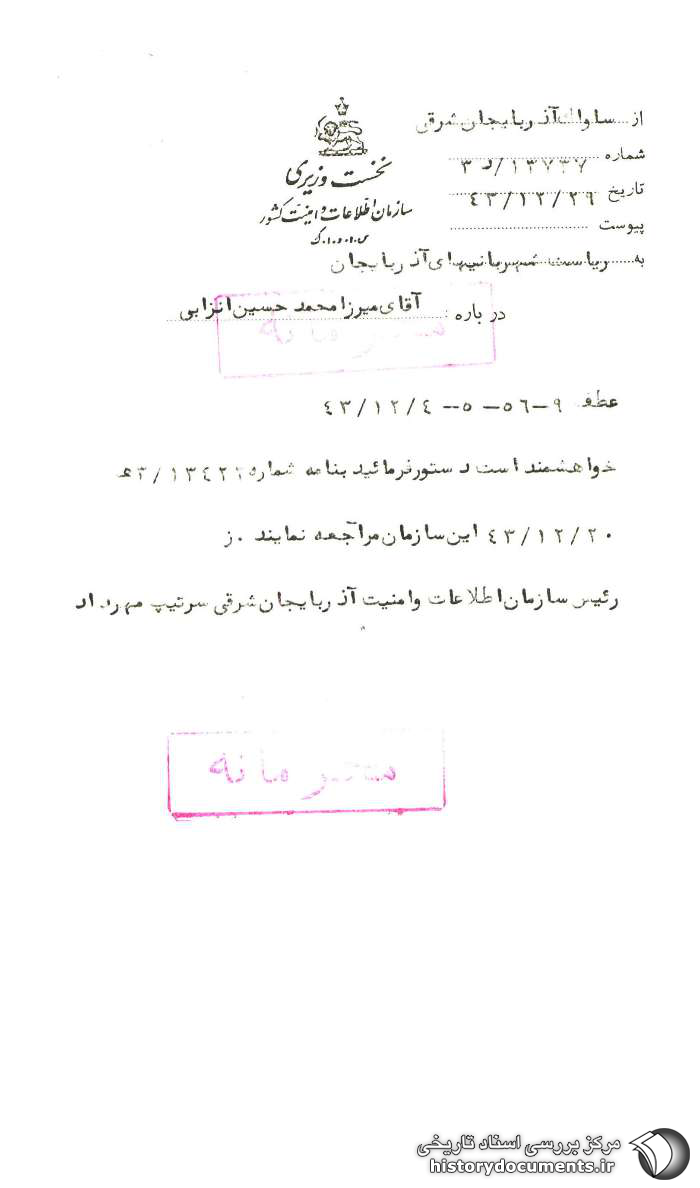 از ساواک آذربایجان شرقی
شماره ۱۳۷۳۷/د ۳
تاریخ ۴۳/۱۲/۲۹
پیوست
نخست وزیری
سازمان اطلاعات و امنیت کشور
س.ا.و.ا.ک
به ریاست شهربانیهای آذربایجان
درباره : آقای میرزا محمد حسین انزابی
محرمانه
عطف ۹-۵۶-۵-- ۴۳/۱۲/۴
خواهشمند است دستور فرمائید بنامه شماره ۱۳۴۲۲/۳ﻫ
۴۳/۱۲/۲۰ این سازمان مراجعه نمایند .ز
رئیس سازمان اطلاعات و امنیت آذربایجان شرقی سرتیپ مهرداد
محرمانه
مرکز بررسی اسناد تاریخی
historydocuments.ir